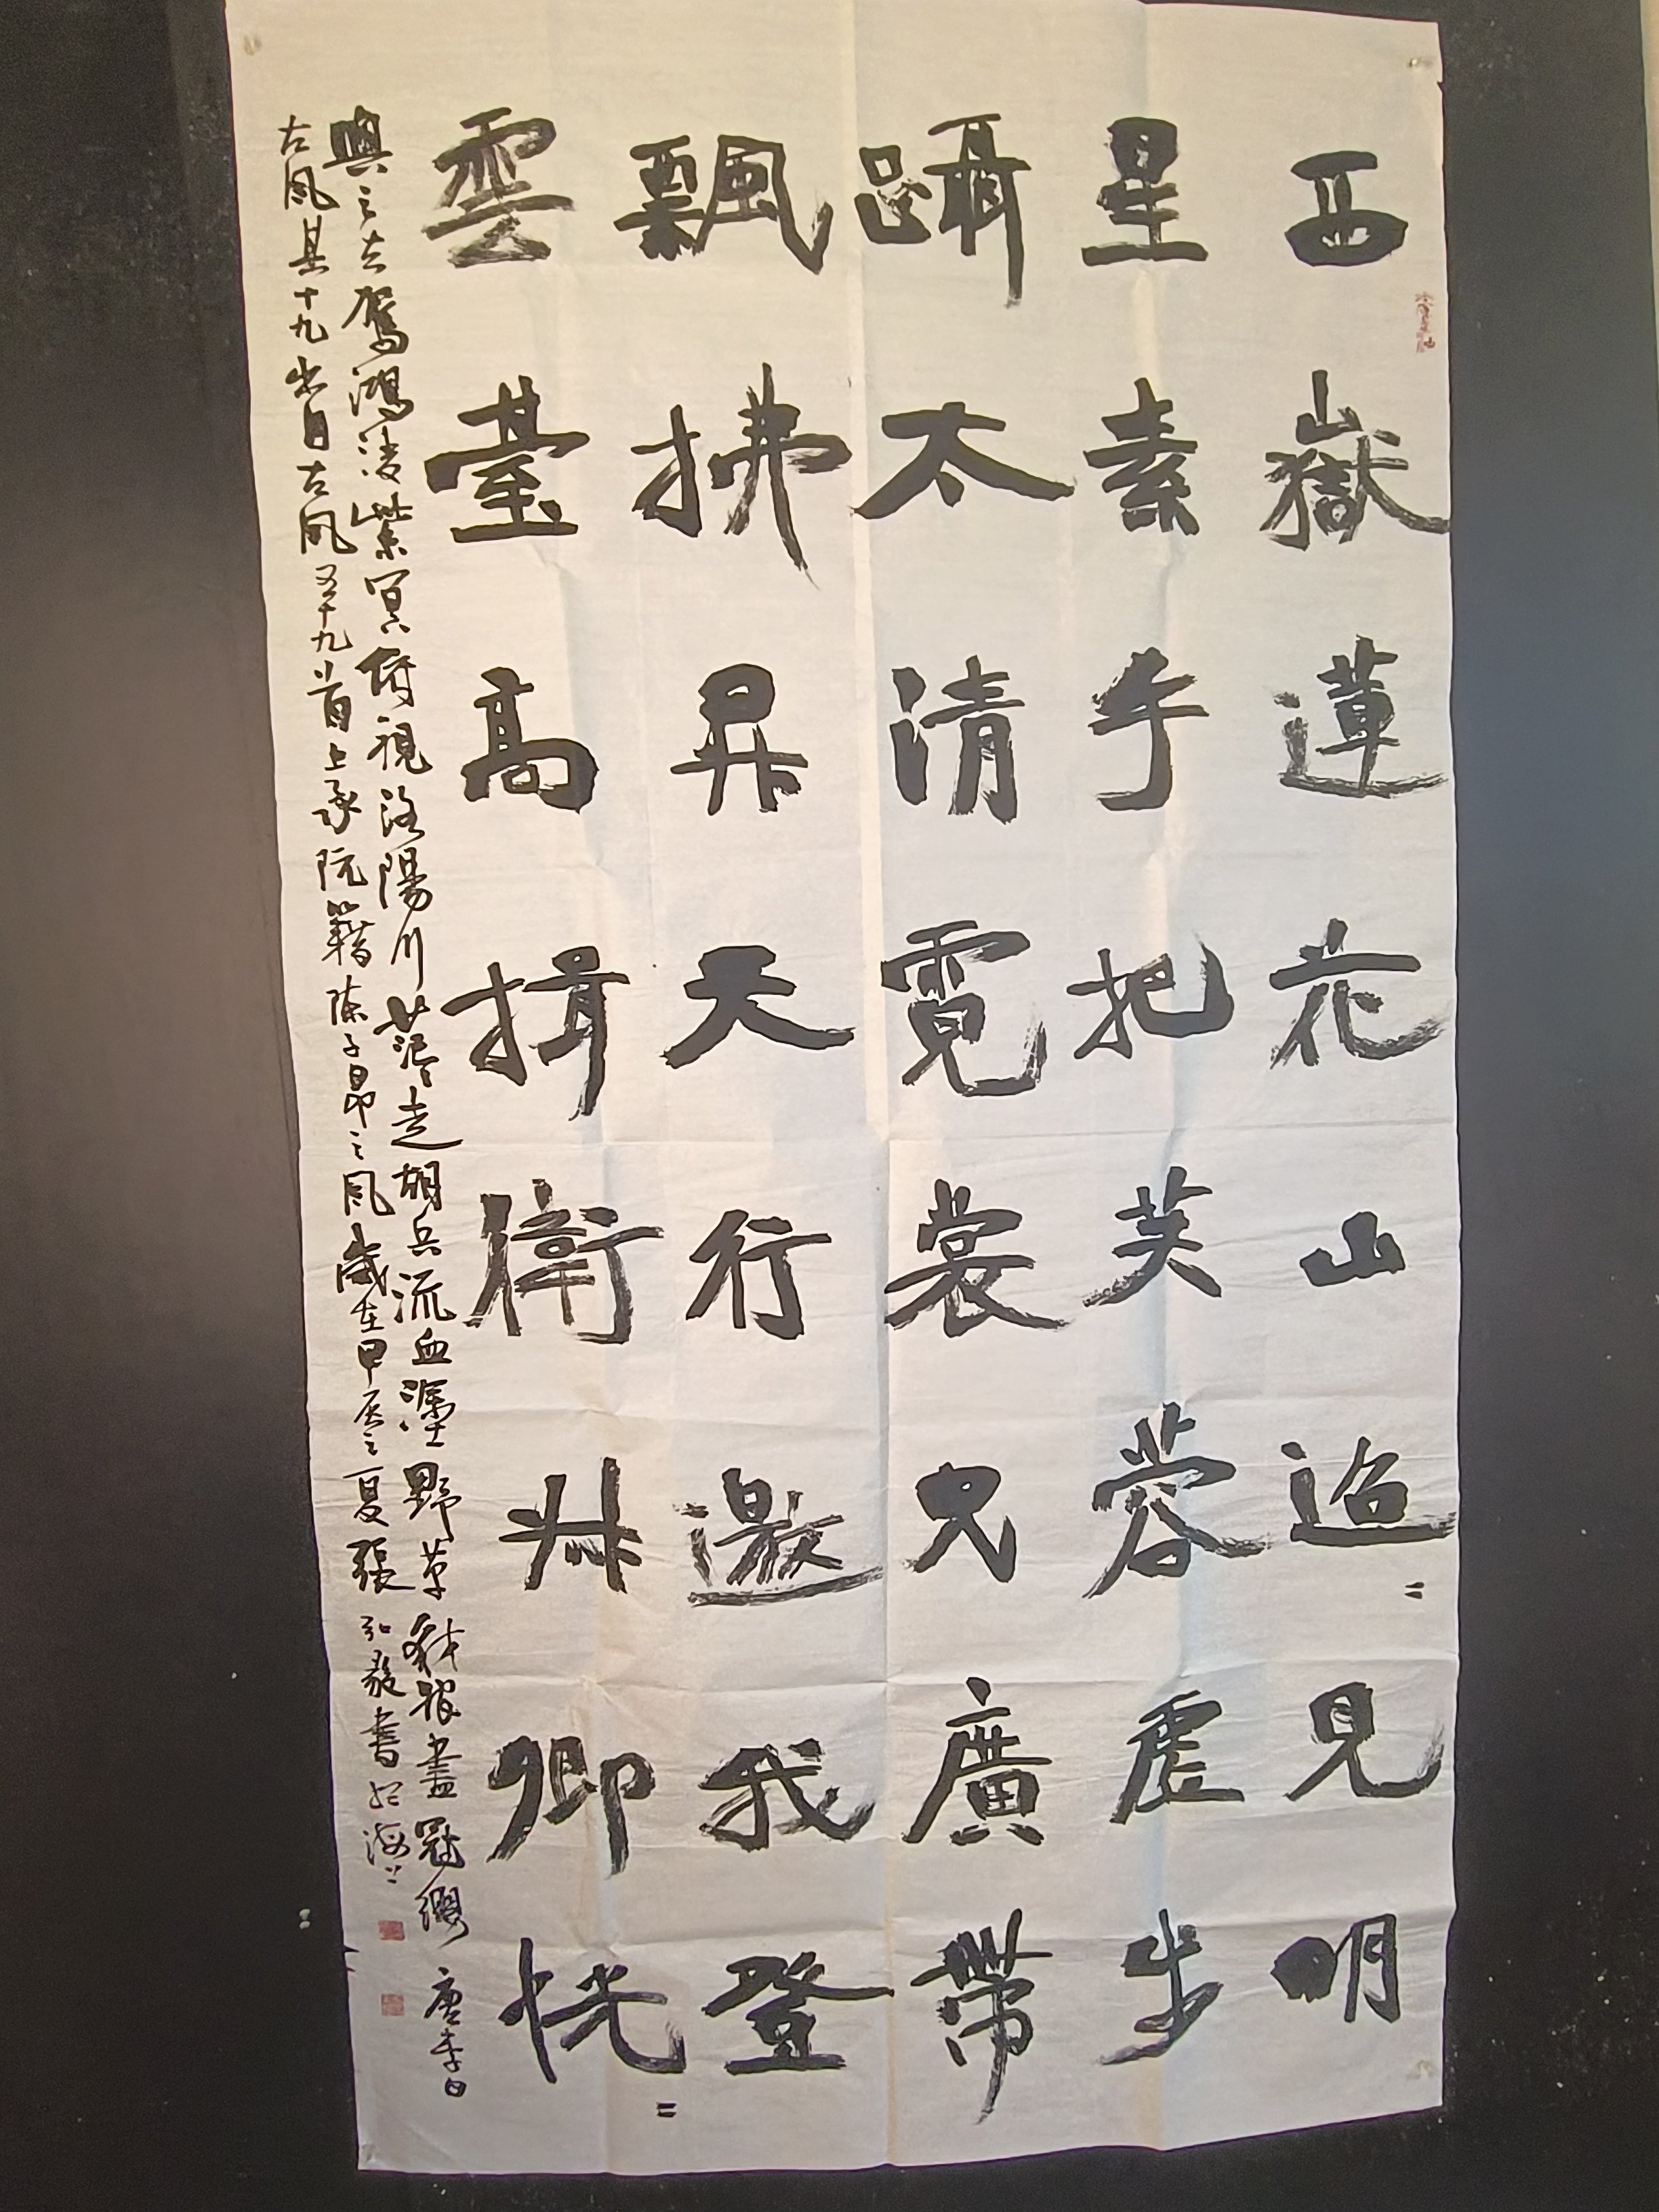 西嶽蓮花山迢〻見明
星素手把芙蓉虛步
躡太清霓裳曳廣帶
飄拂昇天行邀我登
雲臺高揖衛叔卿恍〻
與之去駕鴻淩紫冥俯視洛陽川茫〻走胡兵流血塗野草豺狼盡冠纓 唐李白
古風其十九出自古風五十九首上承阮籍陳子昂之風歲在甲辰之夏張弘毅書於海上